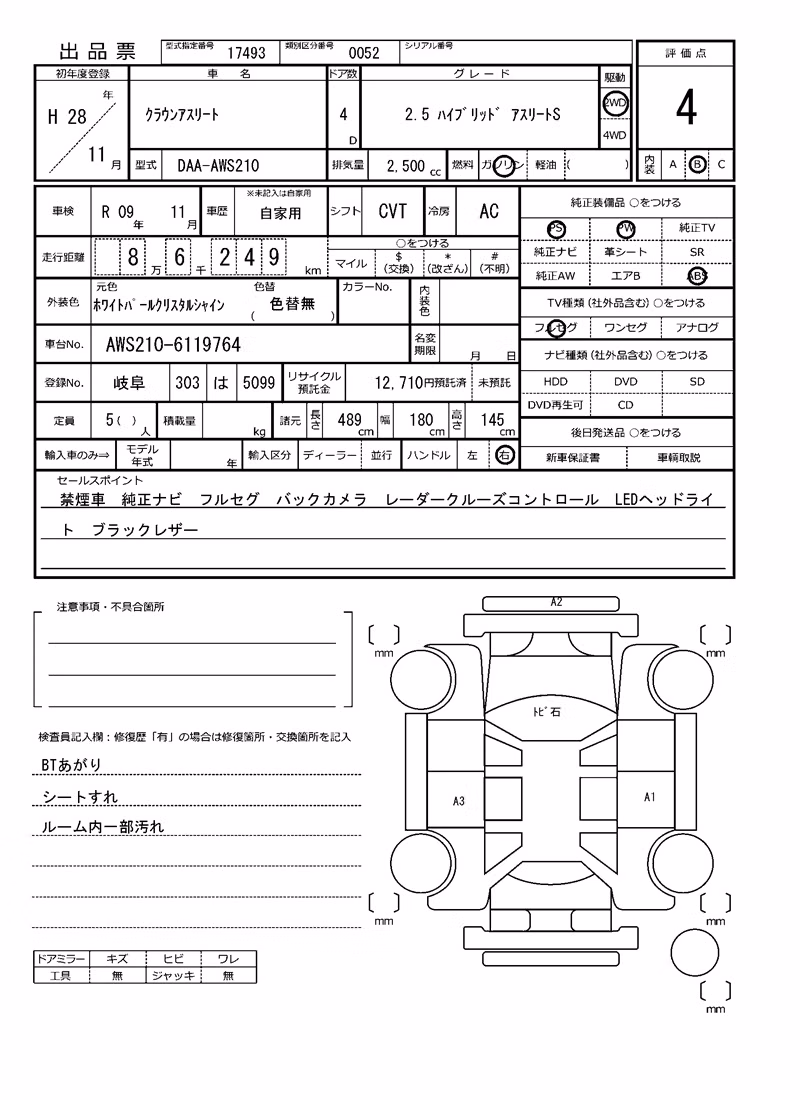 出品票 型式指定番号 17493 類別区分番号 0052 シリアル番号
評価点
初年度登録 車名 ドア数 グレード 駆動
H 28 年 11 月 クラウンアスリート 4 D 2.5 ハイブリッド アスリートS 2WD 4WD
4
型式 DAA-AWS210 排気量 2,500 cc 燃料 ガソリン 軽油 ( )
内装 A B C
車検 R 09 年 11 月 車歴 ※未記入は自家用 自家用 シフト CVT 冷房 AC
純正装備品 ○をつける
PS PW 純正TV
純正ナビ 革シート SR
純正AW エアB ABS
走行距離 8 万 6 千 2 4 9 km
○をつける
マイル $ (交換) * (改ざん) # (不明)
外装色 元色 ホワイトパールクリスタルシャイン 色替 ( 色替無 ) カラーNo. 内装色
TV種類(社外品含む) ○をつける
フルセグ ワンセグ アナログ
車台No. AWS210-6119764 名変期限 月 日
ナビ種類(社外品含む) ○をつける
HDD DVD SD
DVD再生可 CD
登録No. 岐阜 303 は 5099 リサイクル預託金 12,710円預託済 未預託
定員 5( ) 人 積載量 kg 諸元 長さ 489 cm 幅 180 cm 高さ 145 cm
後日発送品 ○をつける
新車保証書 車輌取説
輸入車のみ⇒ モデル年式 年 輸入区分 ディーラー 並行 ハンドル 左 右
セールスポイント
禁煙車 純正ナビ フルセグ バックカメラ レーダークルーズコントロール LEDヘッドライ
ト ブラックレザー
注意事項・不具合箇所
検査員記入欄：修復歴「有」の場合は修復箇所・交換箇所を記入
BTあがり
シートすれ
ルーム内一部汚れ
ドアミラー キズ ヒビ ワレ
工具 無 ジャッキ 無
A2
〔 〕 mm
〔 〕 mm
トビ石
A3
A1
〔 〕 mm
〔 〕 mm
〔 〕 mm